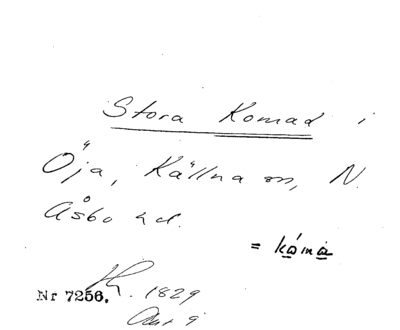 Stora Komad i
Öja, Källna sn, N.
Åsbo hd.
= kåma
Nr 7256. 1829